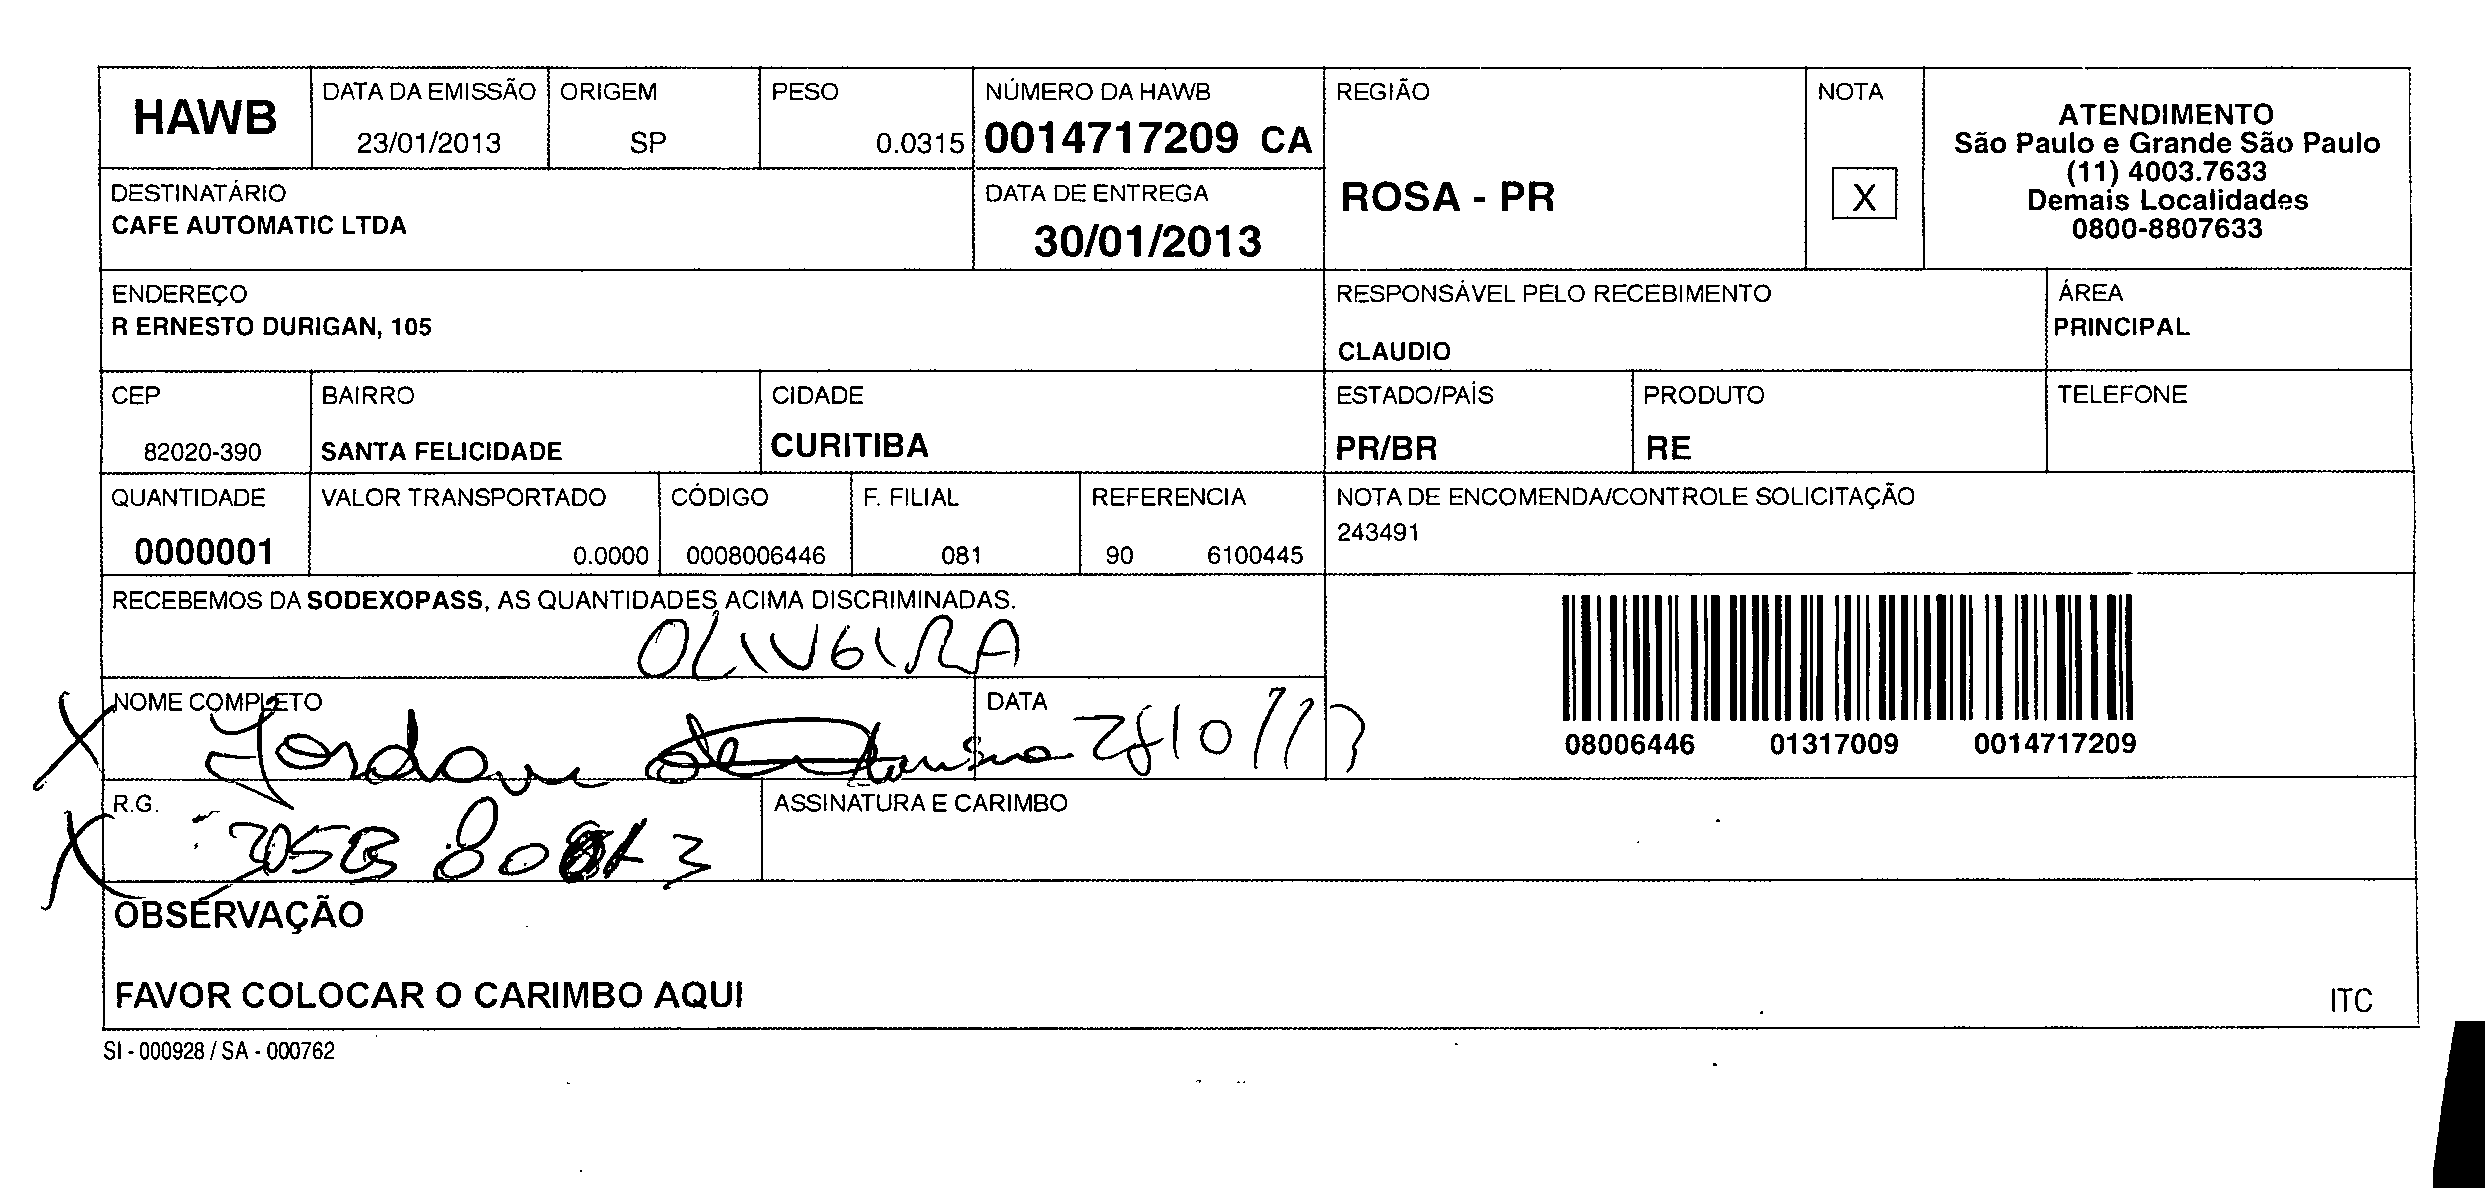 HAWB
DATA DA EMISSÃO
23/01/2013
ORIGEM
SP
PESO
0.0315
NÚMERO DA HAWB
0014717209 CA
REGIÃO
ROSA - PR
NOTA
X
ATENDIMENTO
São Paulo e Grande São Paulo
(11) 4003.7633
Demais Localidades
0800-8807633
DESTINATÁRIO
CAFE AUTOMATIC LTDA
DATA DE ENTREGA
30/01/2013
ENDEREÇO
R ERNESTO DURIGAN, 105
RESPONSÁVEL PELO RECEBIMENTO
CLAUDIO
ÁREA
PRINCIPAL
CEP
82020-390
BAIRRO
SANTA FELICIDADE
CIDADE
CURITIBA
ESTADO/PAÍS
PR/BR
PRODUTO
RE
TELEFONE
QUANTIDADE
0000001
VALOR TRANSPORTADO
0.0000
CÓDIGO
0008006446
F. FILIAL
081
REFERENCIA
90 6100445
NOTA DE ENCOMENDA/CONTROLE SOLICITAÇÃO
243491
RECEBEMOS DA SODEXOPASS, AS QUANTIDADES ACIMA DISCRIMINADAS.
OLIVEIRA
NOME COMPLETO
DATA
08006446 01317009 0014717209
R.G.
ASSINATURA E CARIMBO
OBSERVAÇÃO
FAVOR COLOCAR O CARIMBO AQUI
ITC
SI - 000928 / SA - 000762